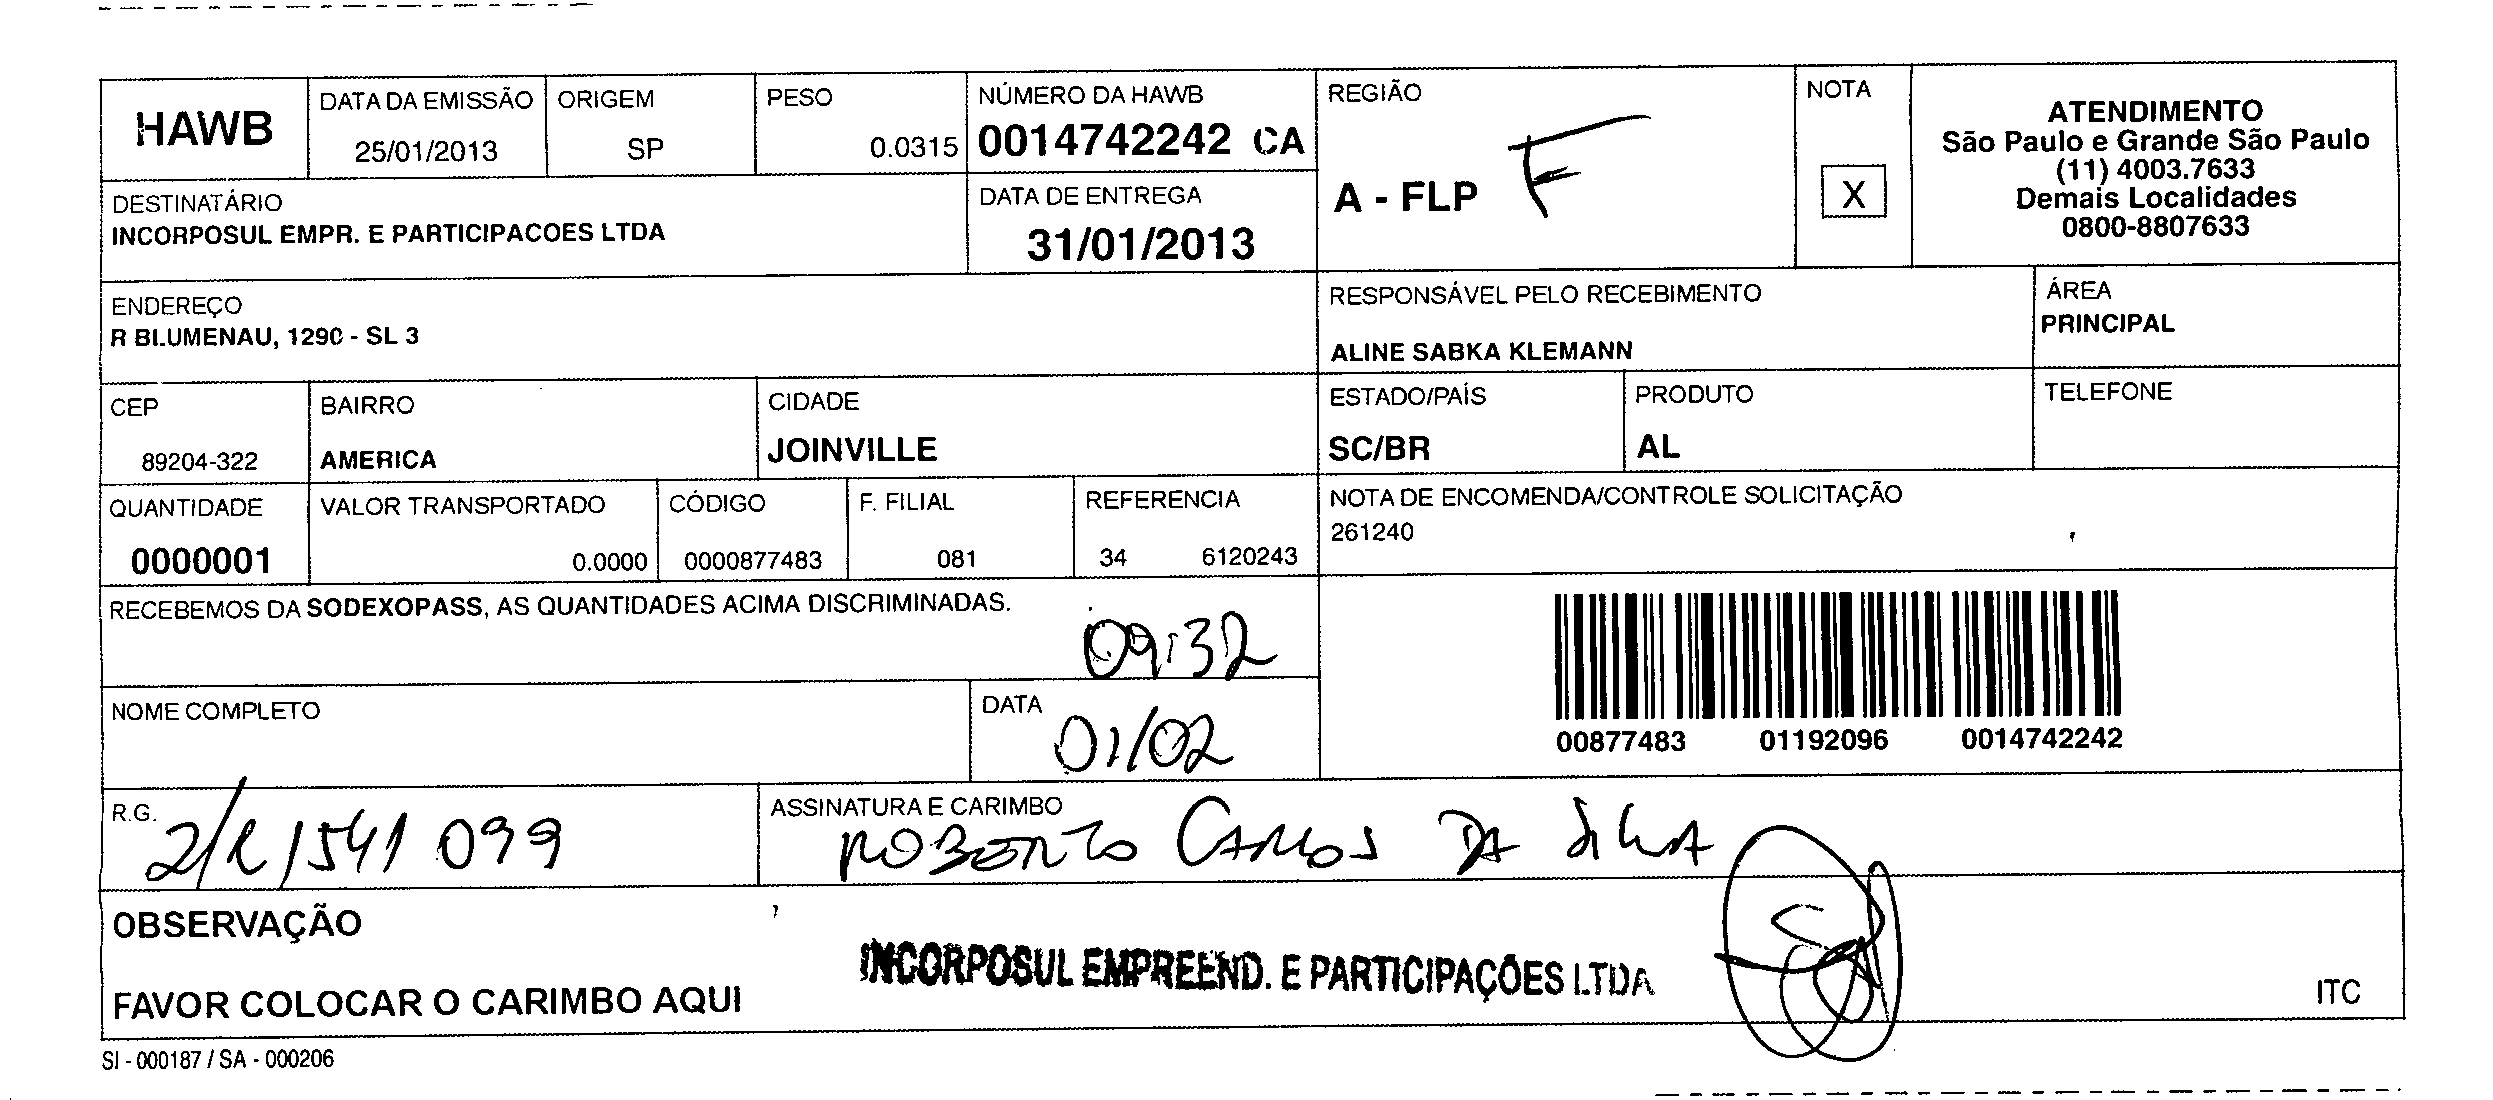 HAWB
DATA DA EMISSÃO
25/01/2013
ORIGEM
SP
PESO
0.0315
NÚMERO DA HAWB
0014742242 CA
REGIÃO
A - FLP F
NOTA
X
ATENDIMENTO
São Paulo e Grande São Paulo
(11) 4003.7633
Demais Localidades
0800-8807633
DESTINATÁRIO
INCORPOSUL EMPR. E PARTICIPACOES LTDA
DATA DE ENTREGA
31/01/2013
ENDEREÇO
R BLUMENAU, 1290 - SL 3
RESPONSÁVEL PELO RECEBIMENTO
ALINE SABKA KLEMANN
ÁREA
PRINCIPAL
CEP
89204-322
BAIRRO
AMERICA
CIDADE
JOINVILLE
ESTADO/PAÍS
SC/BR
PRODUTO
AL
TELEFONE
QUANTIDADE
0000001
VALOR TRANSPORTADO
0.0000
CÓDIGO
0000877483
F. FILIAL
081
REFERENCIA
34 6120243
NOTA DE ENCOMENDA/CONTROLE SOLICITAÇÃO
261240
RECEBEMOS DA SODEXOPASS, AS QUANTIDADES ACIMA DISCRIMINADAS.
09:32
NOME COMPLETO
DATA
01/02
00877483 01192096 0014742242
R.G.
2/R 1541 099
ASSINATURA E CARIMBO
ROBERTO CARLOS DA SILVA
OBSERVAÇÃO
FAVOR COLOCAR O CARIMBO AQUI
INCORPOSUL EMPREEND. E PARTICIPAÇÕES LTDA
ITC
SI - 000187 / SA - 000206